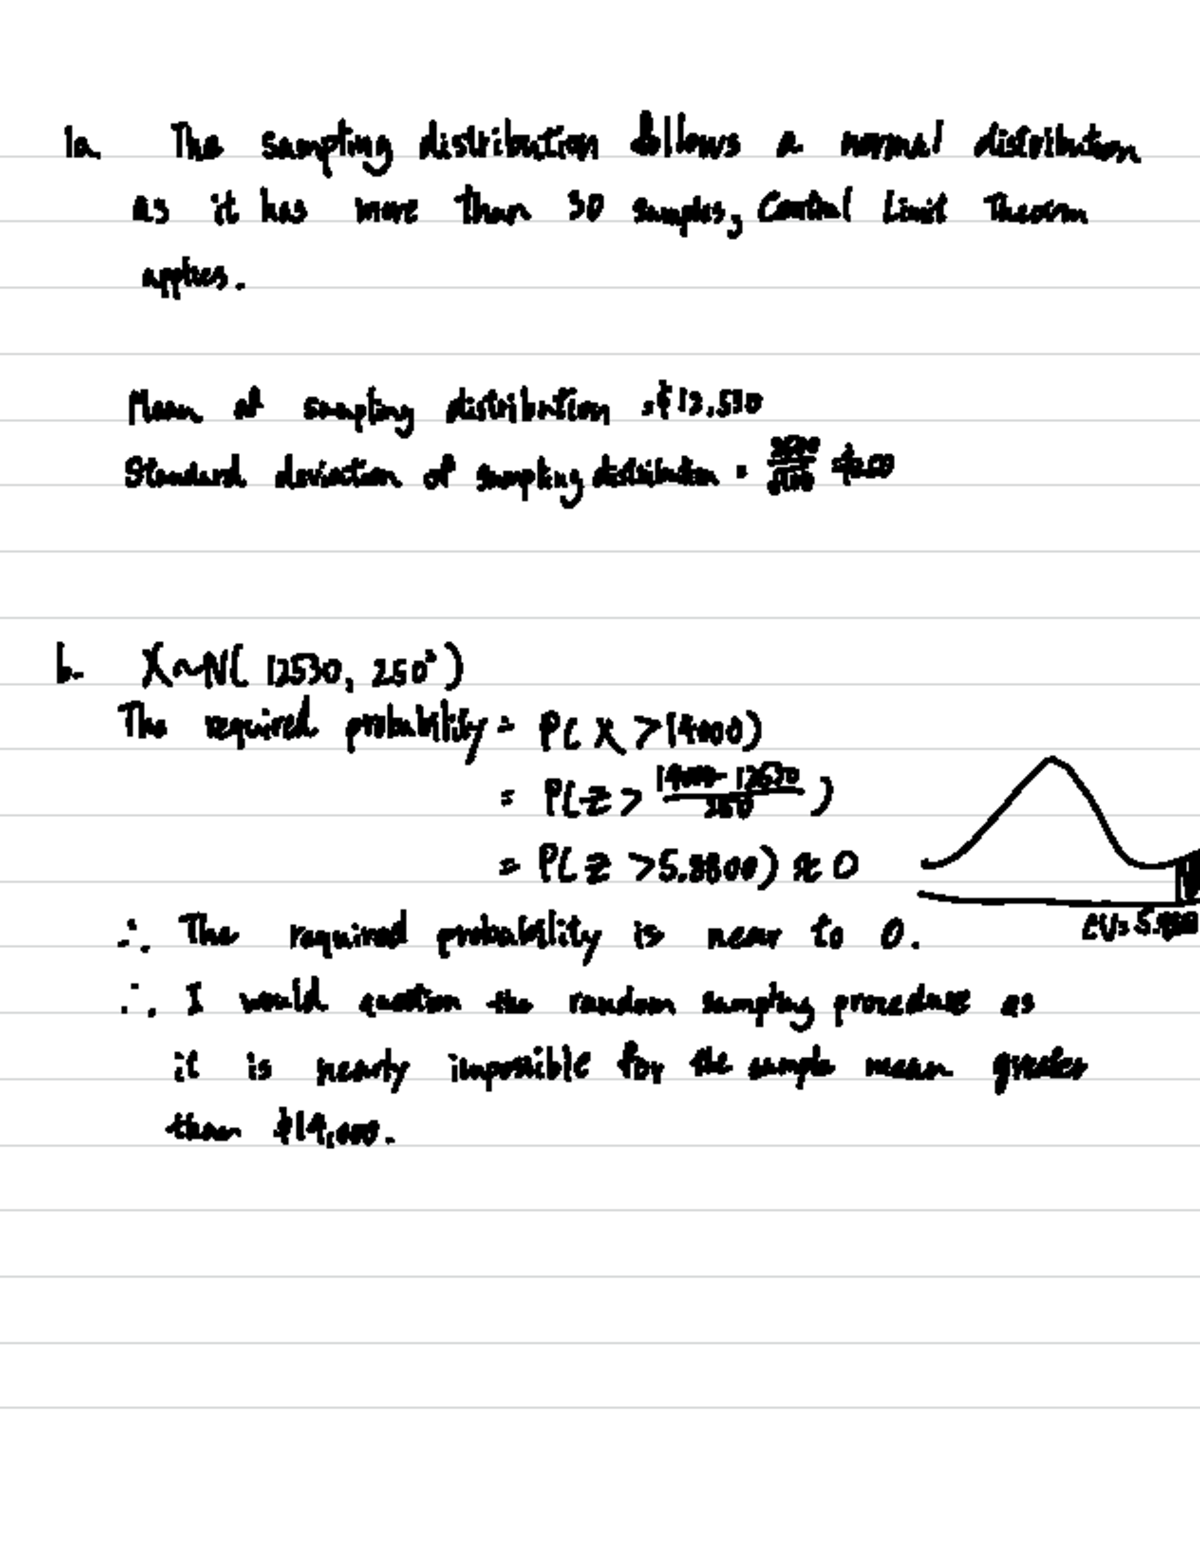 1a. The sampling distribution follows a normal distribution
as it has more than 30 samples, Central Limit Theorem
applies.
Mean of sampling distribution = $12,530
Standard deviation of sampling distribution =
b. X~N( 12530, 250² )
The required probability = P( X > 14000)
= P( z > (14000 - 12530)/250 )
= P( z > 5.8800) ≈ 0
∴ The required probability is near to 0.
∴ I would question the random sampling procedure as
it is nearly impossible for the sample mean greater
than $14,000.